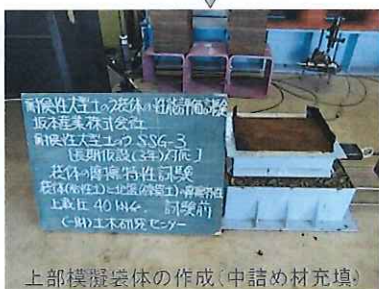 耐候性大型土のう袋体の性能評価試験
坂本産業株式会社
耐候性大型土のう SSG-3
[長期仮設(3年)対応]
袋体の摩擦特性試験
袋体(粘性土)と北盤(砕質土)の摩擦特性
上載圧 40kg. 試験前
(一財)土木研究センター
上部模擬袋体の作成(中詰め材充填)